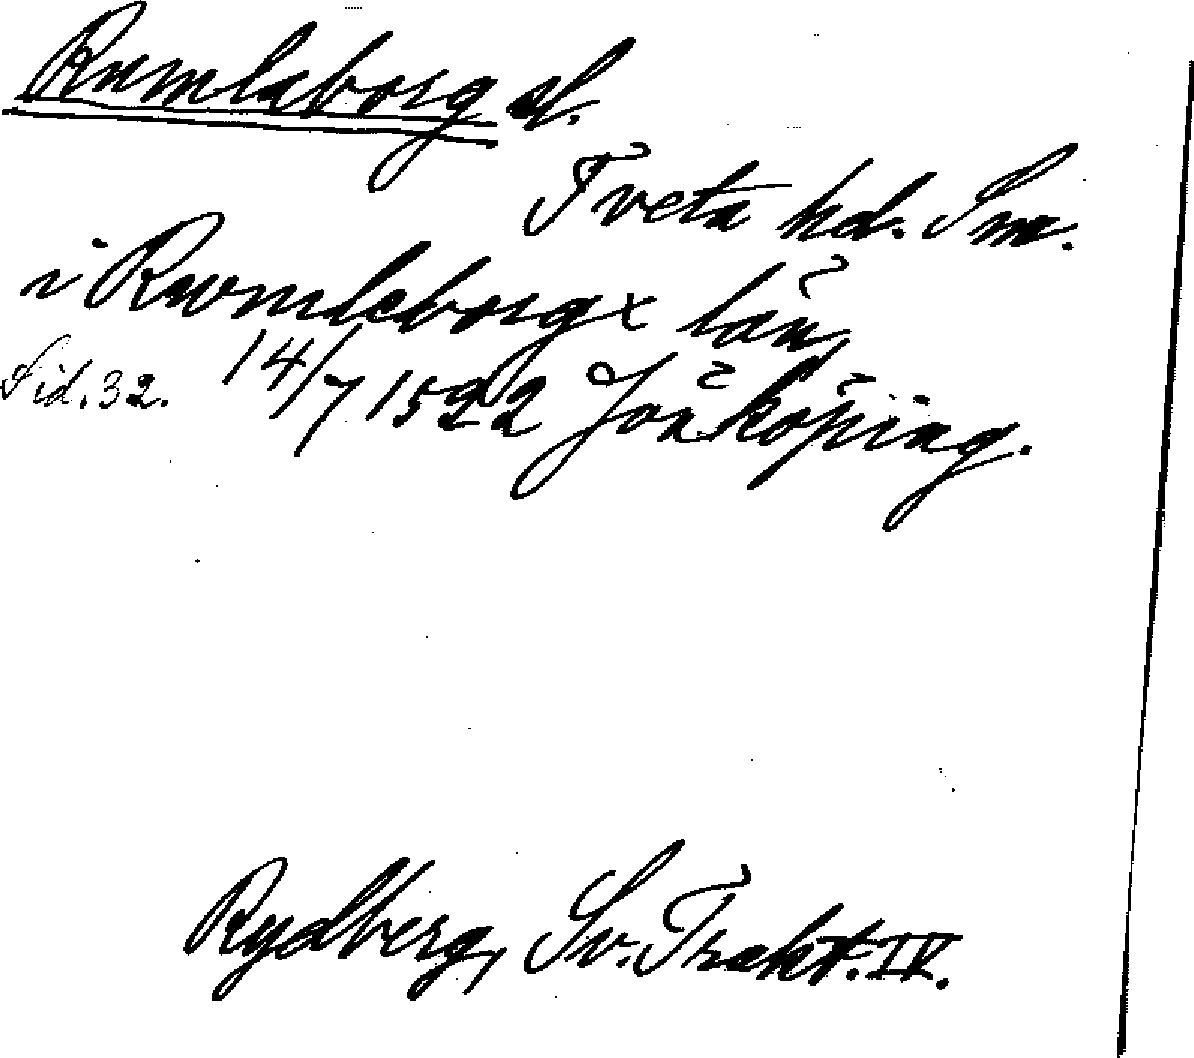 Rumlaborg sl.
Tveta hd. Sm.
i Rwmleborgx län
Sid. 32. 14/7 1522 Jönköping.
Rydberg, Sv. Trakt. IV.